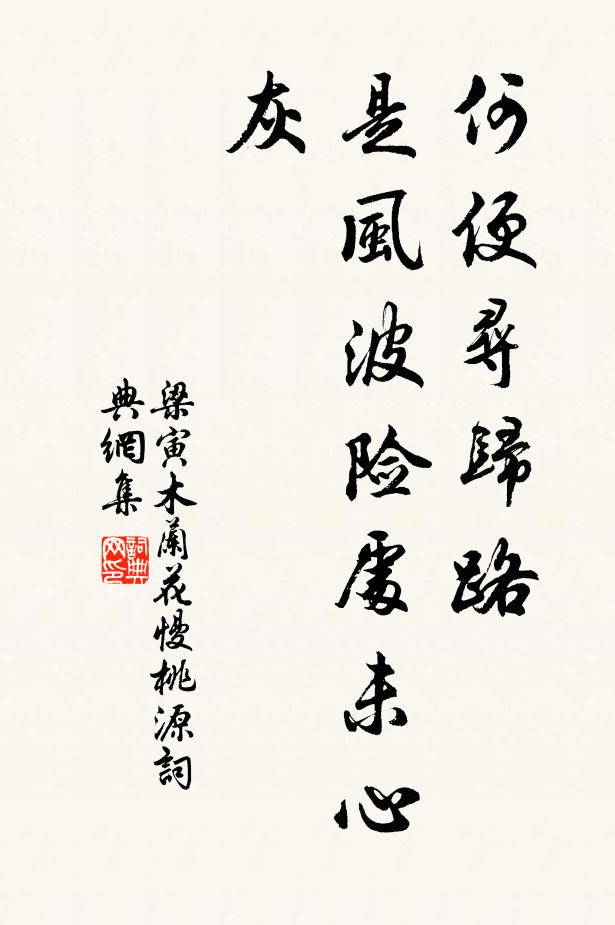 何便尋歸路
是風波險處未心
灰
梁寅木蘭花慢桃源詞
典網集
詞典
网印